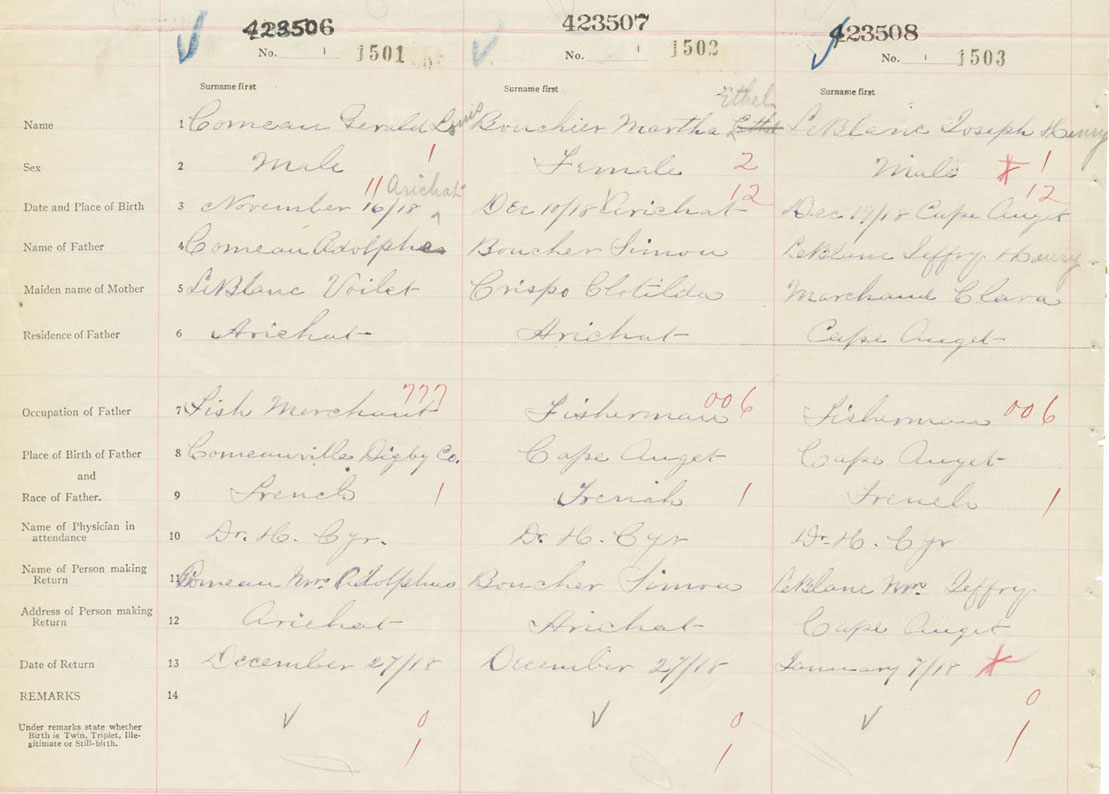 423506 423507 423508
No. 1501 No. 1502 No. 1503
Surname first Surname first Surname first
Ethel
Name 1 Comeau Gerald Louis Bouchier Martha LeBlanc Joseph Henry
Sex 2 Male 1 Female 2 Male 1
11 Arichat 12 12
Date and Place of Birth 3 November 16/18 Dec 10/18 Arichat Dec 19/18 Cape Auget
Name of Father 4 Comeau Adolphe Boucher Simon LeBlanc Jeffry Henry
Maiden name of Mother 5 LeBlanc Voilet Crispo Clotilda Marchand Clara
Residence of Father 6 Arichat Arichat Cape Auget
777 006 006
Occupation of Father 7 Fish Merchant Fisherman Fisherman
Place of Birth of Father 8 Comeauville Digby Co. Cape Auget Cape Auget
and
Race of Father. 9 French 1 French 1 French 1
Name of Physician in
attendance 10 Dr. H. Cyr. Dr. H. Cyr Dr. H. Cyr
Name of Person making
Return 11 Comeau Mrs Adolphus Boucher Simon LeBlanc Mrs. Jeffry
Address of Person making
Return 12 Arichat Arichat Cape Auget
Date of Return 13 December 27/18 December 27/18 January 7/18
REMARKS 14
0 0 0
Under remarks state whether
Birth is Twin, Triplet, Ille-
gitimate or Still-birth.
1 1 1